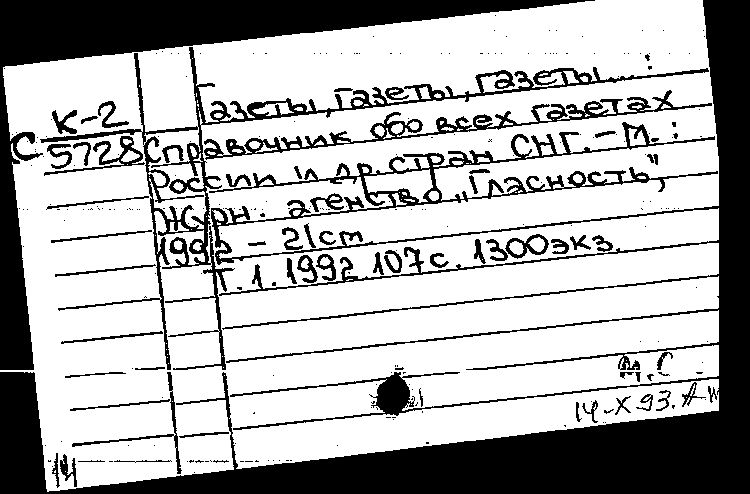 Газеты, газеты, газеты... :
К-2
С 5728
Справочник обо всех газетах
России и др. стран СНГ. – М. :
Журн. агенство „Гласность",
1992 – 21 cm
Т. 1. 1992 107 с. 1300 экз.
М. С
14-X 93.
14